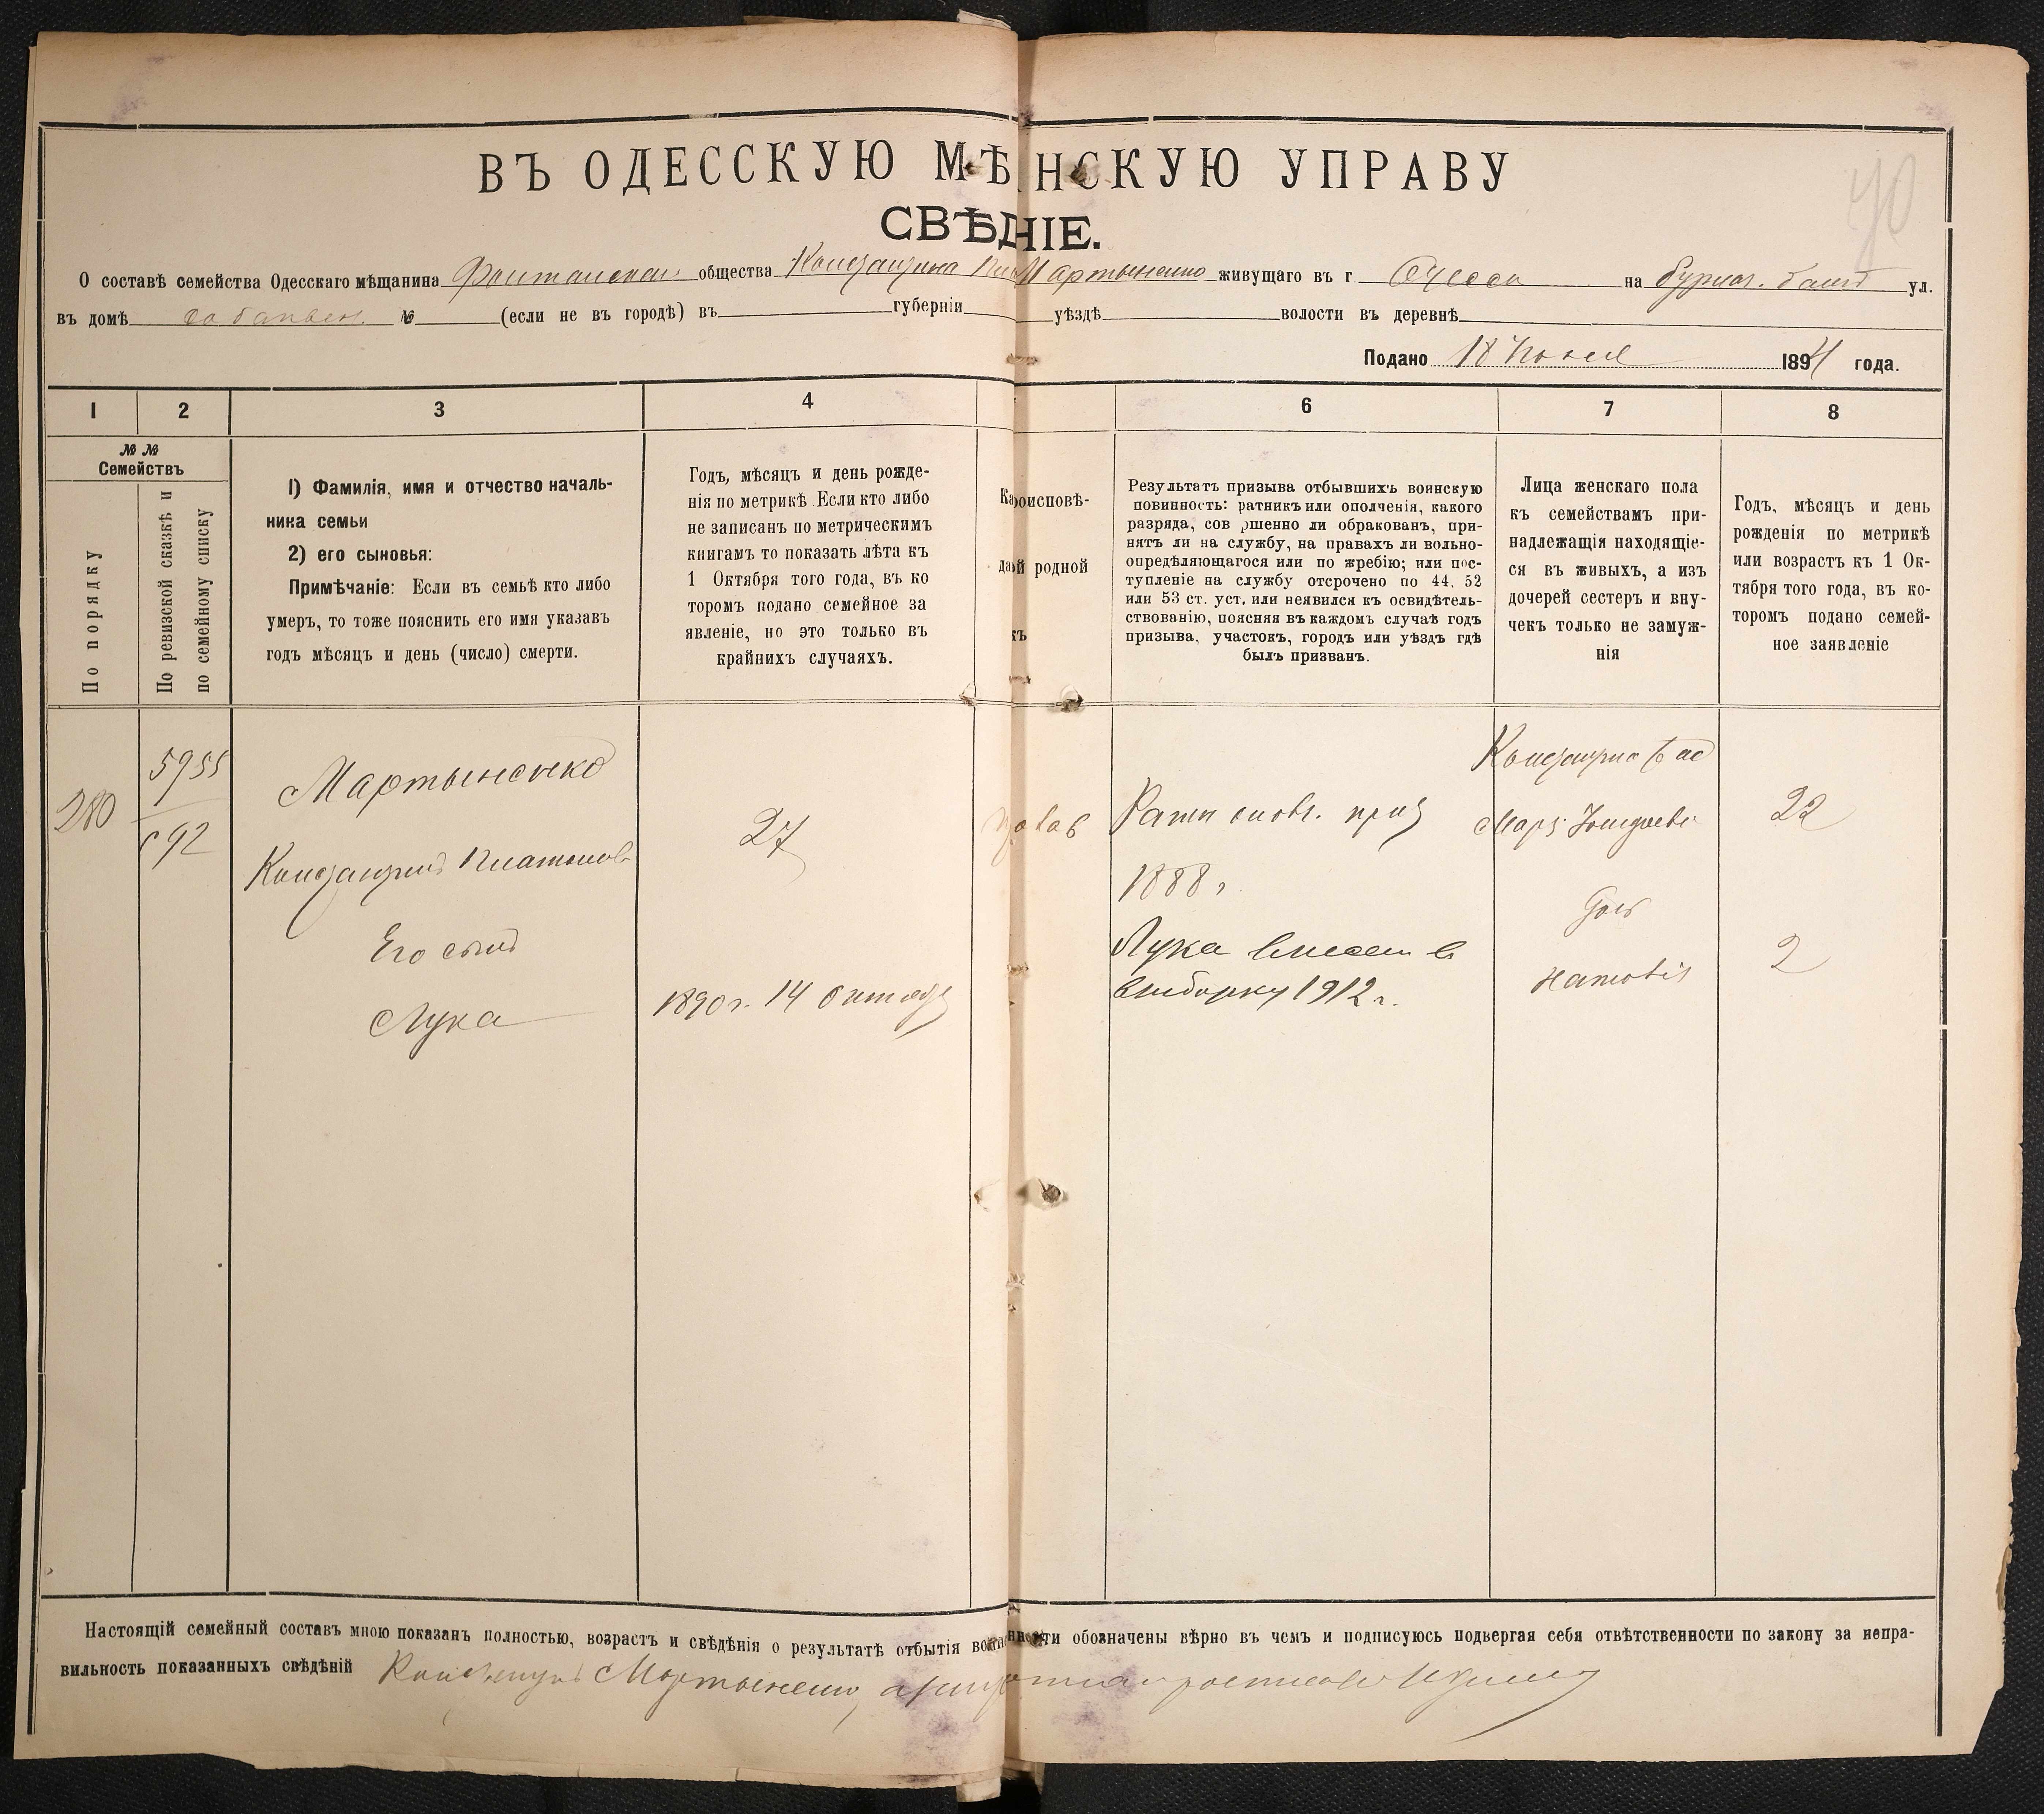 40
ВЪ ОДЕССКУЮ МѢ НСКУЮ УПРАВУ
СВѢД НІЕ.
О составѣ семейства Одесскаго мѣщанина общества Мартыненко живущаго въ г Одесса на ул.
въ домѣ № (если не въ городѣ) въ губерніи уѣздѣ волости въ деревнѣ
Подано 18 1894 года.
1 2 3 4 6 7 8
№ № Семействъ
По порядку
По ревизской сказкѣ и по семейному списку
1) Фамилія, имя и отчество началь-
ника семьи
2) его сыновья:
Примѣчаніе: Если въ семьѣ кто либо
умеръ, то тоже пояснить его имя указавъ
годъ мѣсяцъ и день (число) смерти.
Годъ, мѣсяцъ и день рожде-
нія по метрикѣ Если кто либо
не записанъ по метрическимъ
книгамъ то показать лѣта къ
1 Октября того года, въ ко
торомъ подано семейное за
явленіе, но это только въ
крайнихъ случаяхъ.
Ка роисповѣ-
да й родной
къ
Результатъ призыва отбывшихъ воинскую
повинность: ратникъ или ополченія, какого
разряда, сов ршенно ли обракованъ, при-
нятъ ли на службу, на правахъ ли вольно-
опредѣляющагося или по жребію; или пос-
тупленіе на службу отсрочено по 44, 52
или 53 ст. уст. или неявился къ освидѣтель-
ствованію, поясняя въ каждомъ случаѣ годъ
призыва, участокъ, городъ или уѣздъ гдѣ
былъ призванъ.
Лица женскаго пола
къ семействамъ при-
надлежащія находящіе-
ся въ живыхъ, а изъ
дочерей сестеръ и вну-
чекъ только не замуж-
нія
Годъ, мѣсяцъ и день
рожденія по метрикѣ
или возрастъ къ 1 Ок-
тября того года, въ ко-
торомъ подано семей-
ное заявленіе
280
5955
692
Мартыненко
Константинъ Платонов
27
Рат опол. приз
1888 г
22
Его сынъ
Лука
1890 г. 14 октябр
Лука внесен в
выборку 1912 г.
доч
Наталія
2
Настоящій семейный составъ мною показанъ полностью, возрастъ и свѣдѣнія о результатѣ отбытія во нности обозначены вѣрно въ чемъ и подписуюсь подвергая себя отвѣтственности по закону за непра-
вильность показанныхъ свѣдѣній Мартыненко